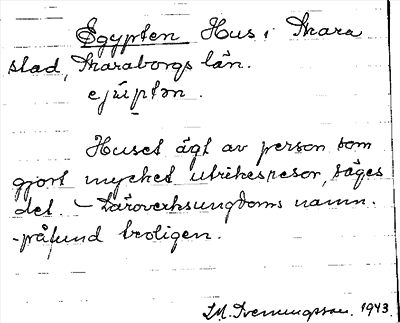 Egypten Hus i Skara
stad, Skaraborgs län.
ejúptən.
Huset ägt av person som
gjort mycket utrikesresor, säges
det. – Läroverksungdoms namn-
-påfund troligen.
1943.